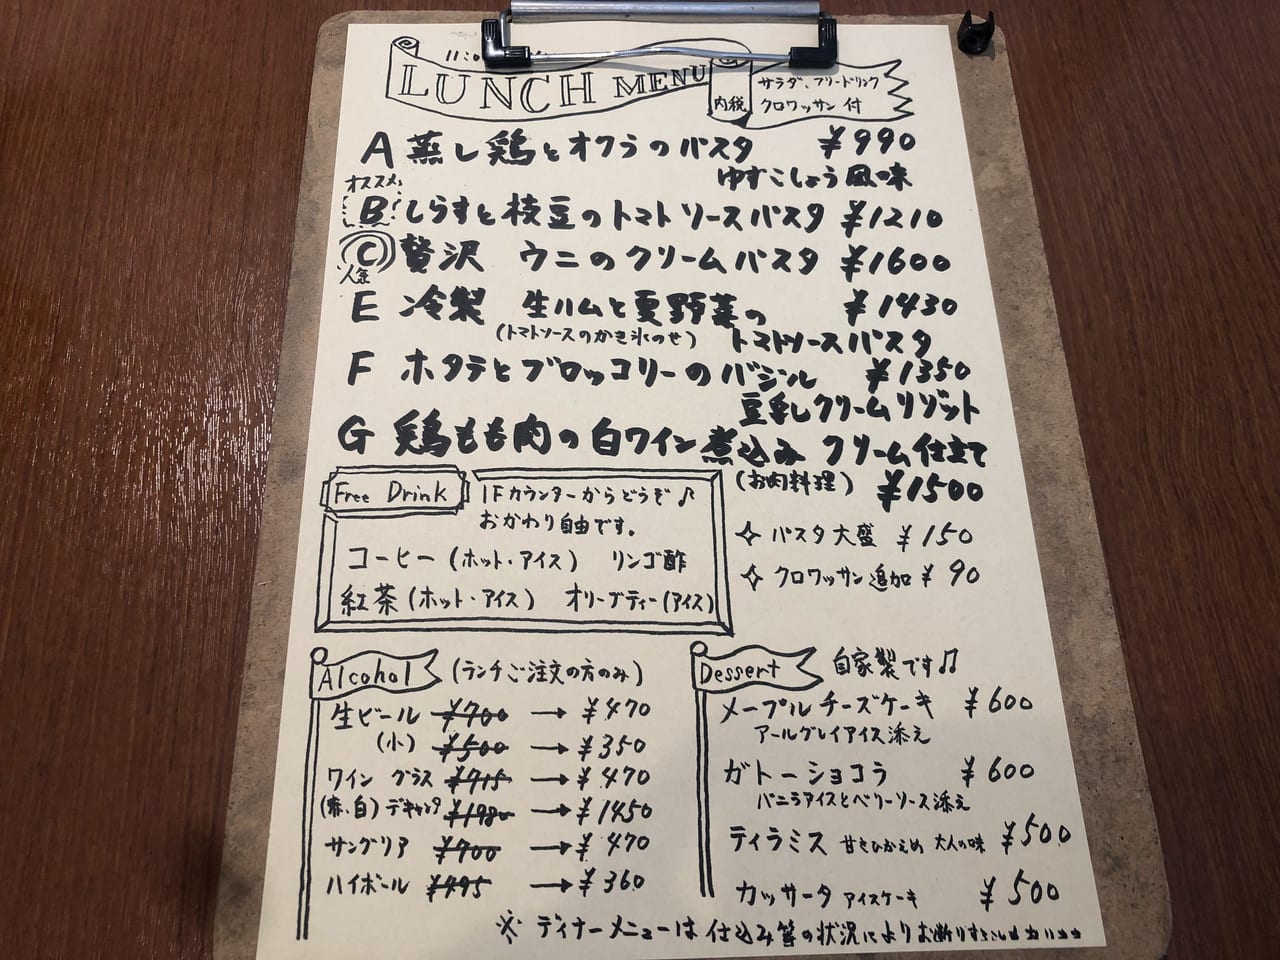 LUNCH MENU
内税
サラダ、フリードリンク
クロワッサン付
A 蒸し鶏とオクラのパスタ ¥990
ゆずこしょう風味
オススメ
B しらすと枝豆のトマトソースパスタ ¥1210
C 贅沢 ウニのクリームパスタ ¥1600
人気
E 冷製 生ハムと夏野菜の ¥1430
(トマトソースのかき氷のせ) トマトソースパスタ
F ホタテとブロッコリーのバジル ¥1350
豆乳しクリームリゾット
G 鶏もも肉の白ワイン煮込み クリーム仕立て
(お肉料理) ¥1500
Free Drink
1Fカウンターからどうぞ♪
おかわり自由です。
コーヒー(ホット・アイス) リンゴ酢
紅茶(ホット・アイス) オリーブティー(アイス)
✧ パスタ大盛 ¥150
✧ クロワッサン追加 ¥90
Alcohol (ランチご注文の方のみ)
生ビール ¥700 → ¥470
(小) ¥500 → ¥350
ワイン グラス ¥715 → ¥470
(赤、白) デキャンタ ¥1980 → ¥1450
サングリア ¥700 → ¥470
ハイボール ¥495 → ¥360
Dessert 自家製です♫
メープルチーズケーキ ¥600
アールグレイアイス添え
ガトーショコラ ¥600
バニラアイスとベリーソース添え
ティラミス 甘さひかえめ 大人の味 ¥500
カッサータ アイスケーキ ¥500
※ ディナーメニューは仕込み等の状況によりお断りする